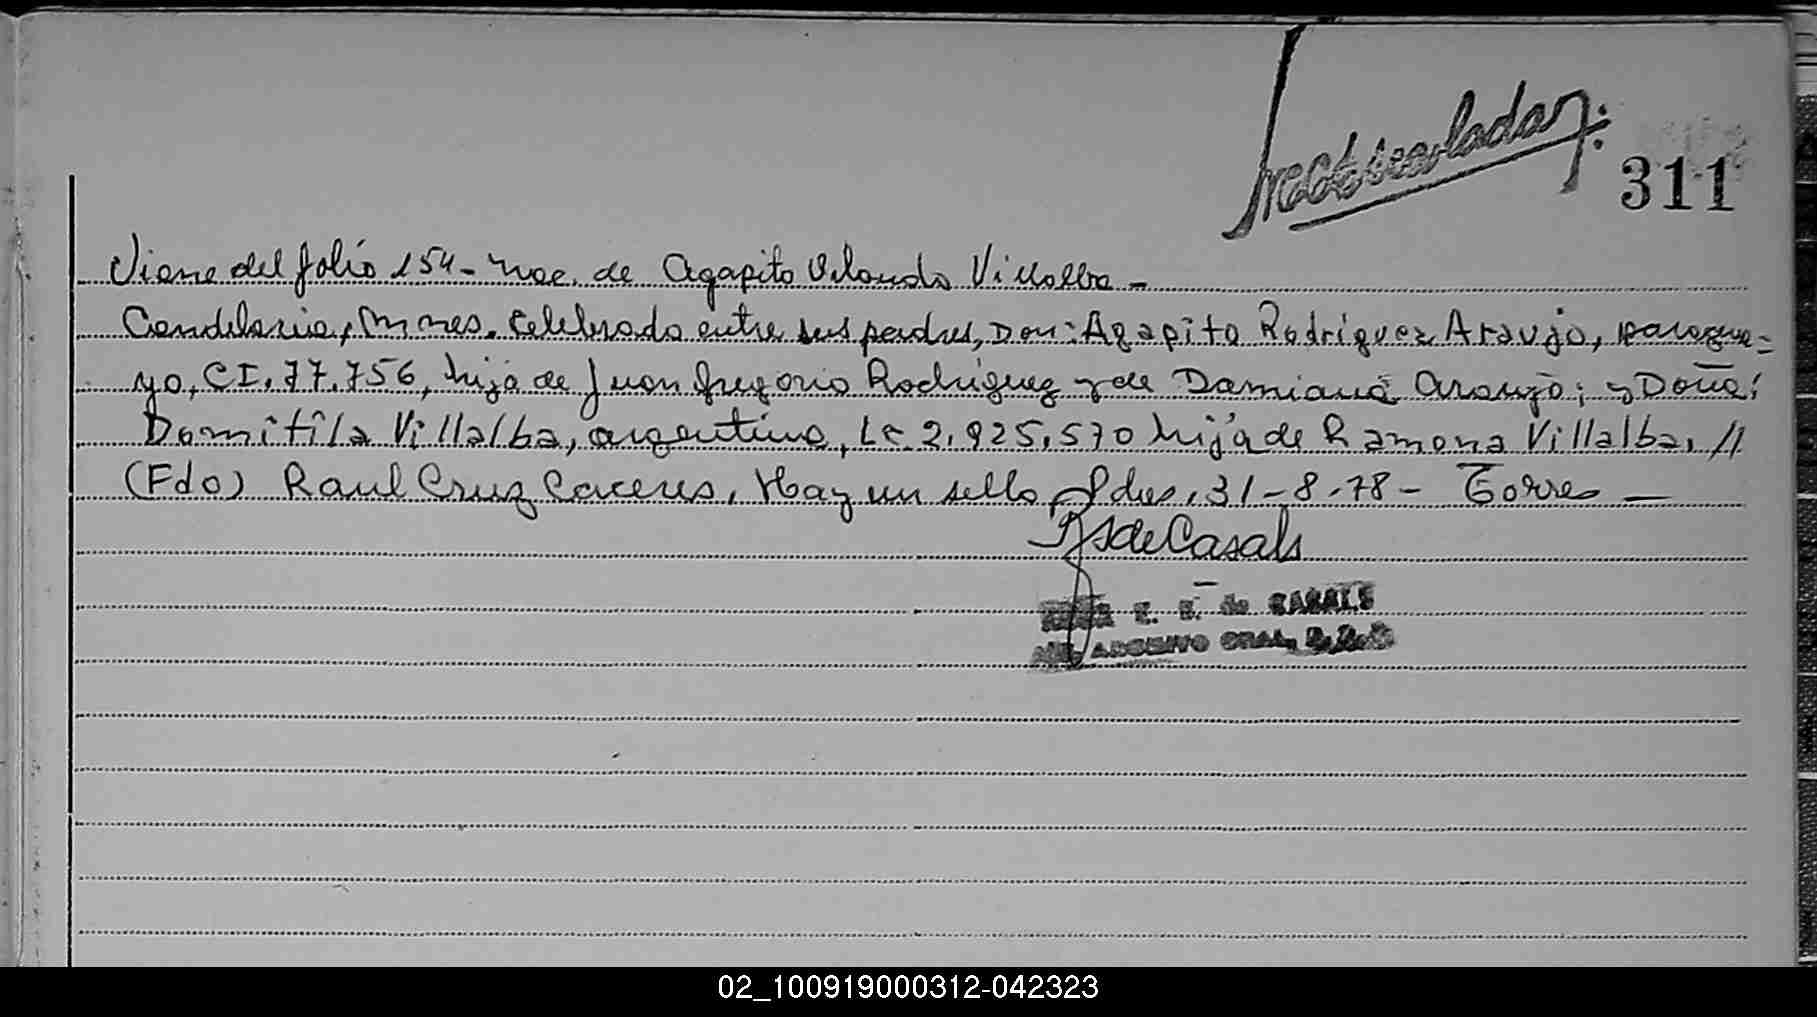 311
Viene del folio 154- nac. de Agapito Orlando Villalba -
Candelaria, Mnes. Celebrado entre sus padres, Don: Agapito Rodriguez Araujo, paragua=
yo, CI. 77.756, hijo de Juan Gregorio Rodriguez y de Damiana Araujo; y Doña:
Domitila Villalba, argentina, Lc. 2.925.570 hija de Ramona Villalba, //
(Fdo) Raul Cruz Caceres, Hay un sello. Pdas, 31-8-78- Torres —
de Casals
E. B. de CASALS
ARCHIVO GRAL.
02_100919000312-042323